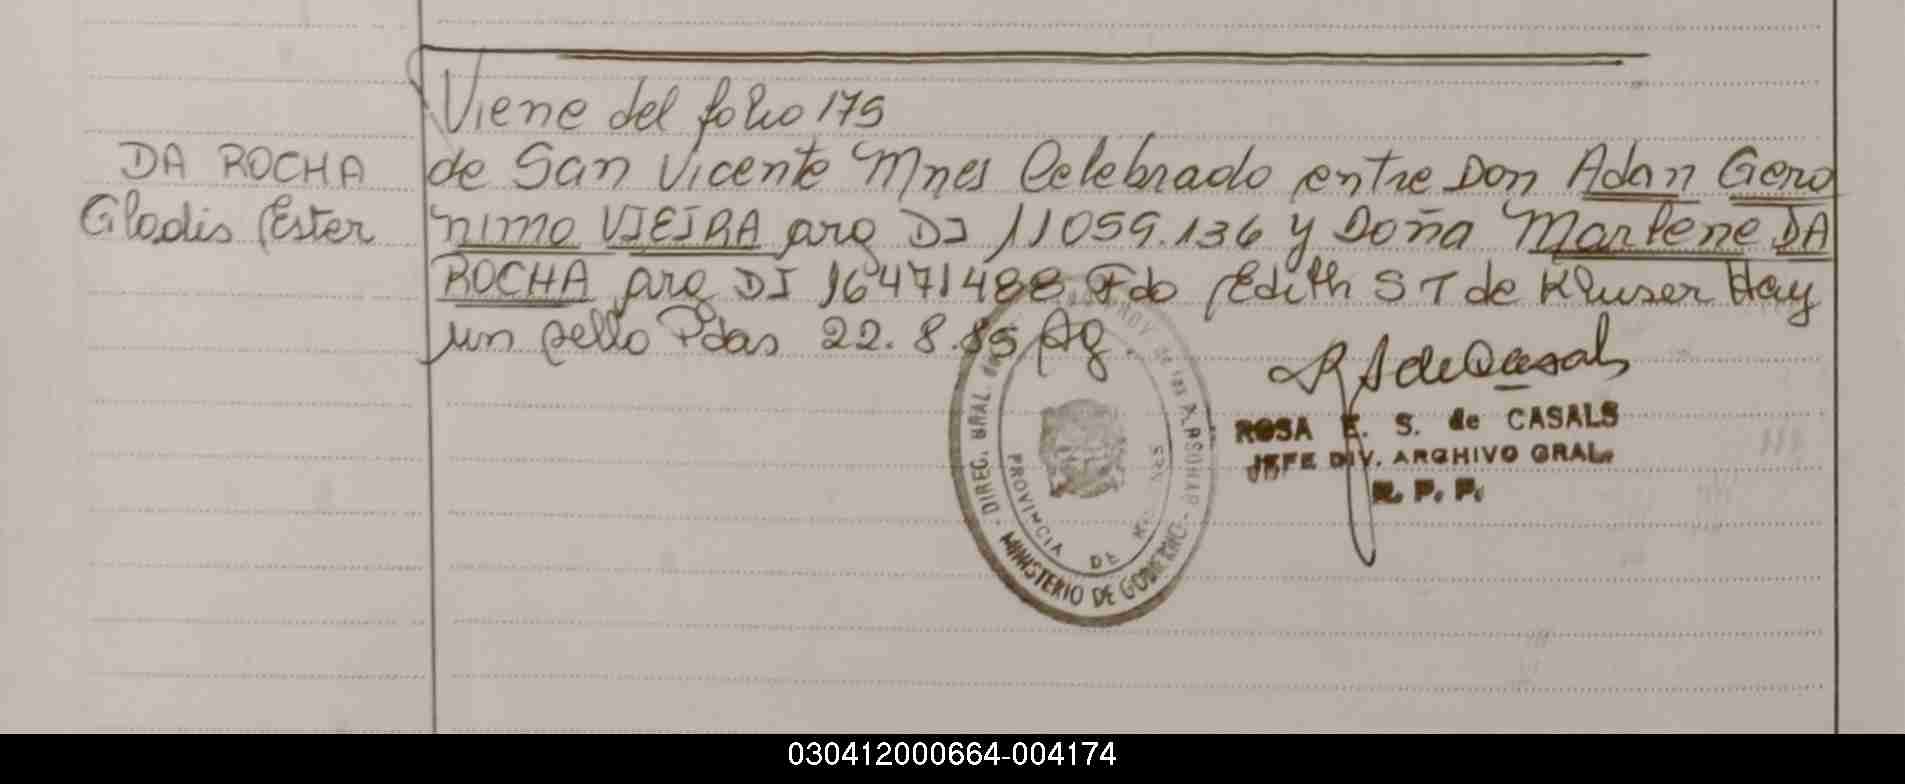 Viene del folio 175
DA ROCHA
Gladis Ester
de San Vicente Mnes Celebrado entre Don Adan Gero
nimo VIEIRA arg DI 11059.136 y Doña Marlene DA
ROCHA arg DI 16471488 Fdo Edith S T de Kluser Hay
un sello Pdas 22.8.85 Ag.
DIREC. GRAL. de las PERSONAS
PROVINCIA DE MISIONES
MINISTERIO DE GOBIERNO
R S de Casals
ROSA E. S. de CASALS
JEFE DIV. ARCHIVO GRAL.
R. P. P.
030412000664-004174